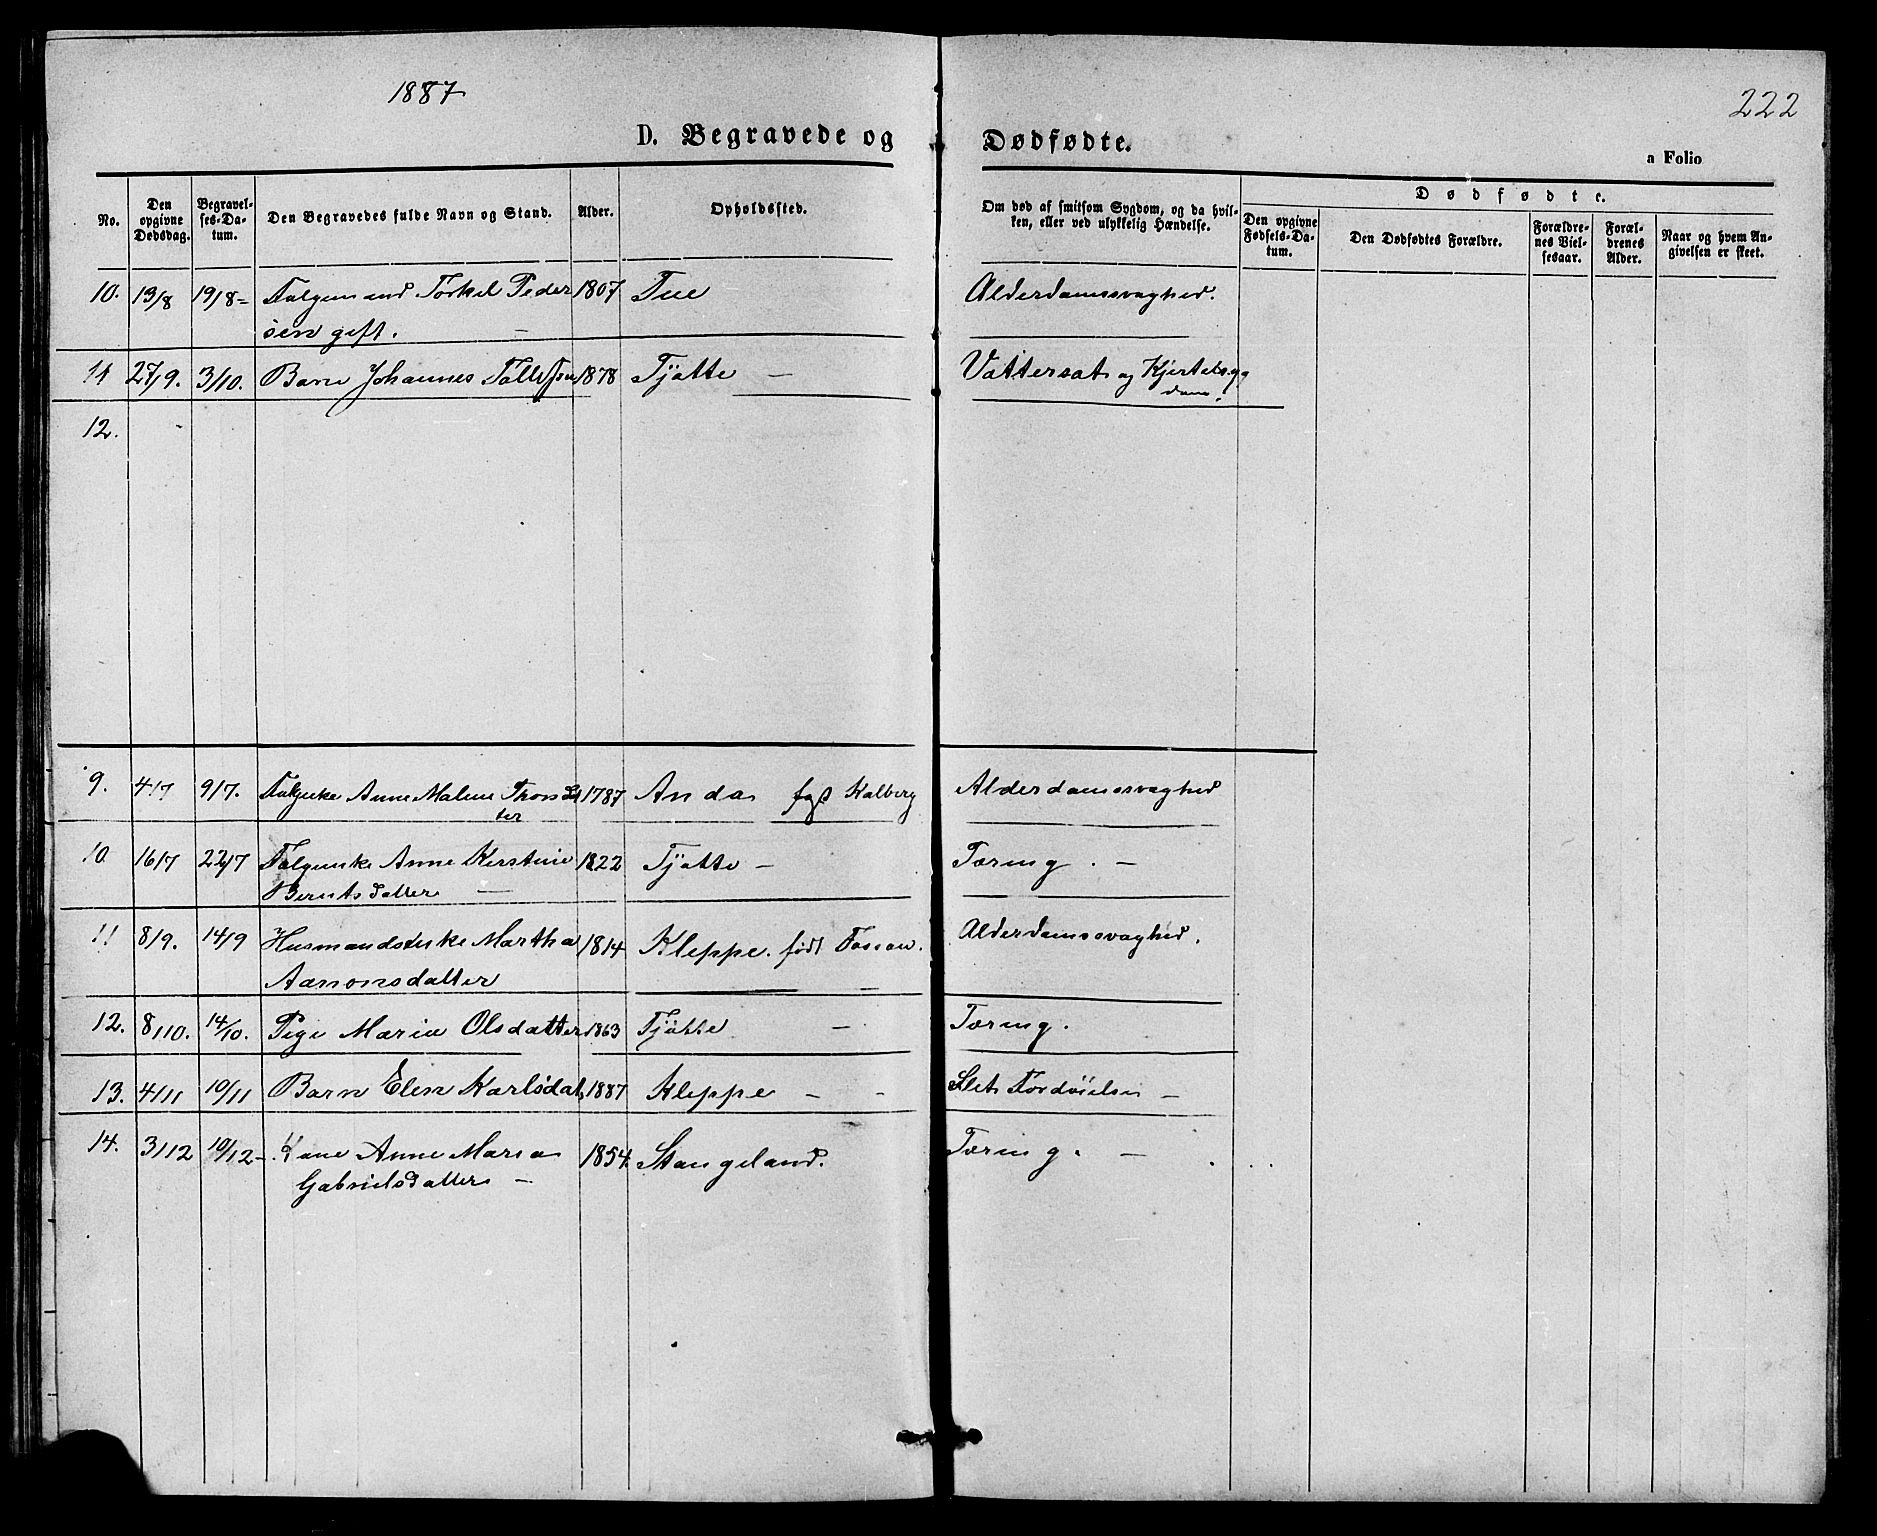 1887
222
D. Begravede og Dødfødte.
a Folio
No.
Den opgivne Dødsdag.
Begravelses-Datum.
Den Begravedes fulde Navn og Stand.
Alder.
Opholdssted.
Om død af smitsom Sygdom, og da hvilken, eller ved ulykkelig Hændelse.
Dødfødte.
Den opgivne Fødsels-Datum.
Den Dødfødtes Forældre.
Forældrenes Vielsesaar.
Forældrenes Alder.
Naar og hvem Angivelsen er skeet.
10. 13/8 19/8 Folgemand Torkel Peder 1807 Tue Alderdomssvaghed.
sen gift.
11 27/9. 3/10. Barn Johannes Tollefsen 1878 Tjøtte – Vattersot og Kjertelsyg
dom.
12.
9. 4/7 9/7. Anne Malene 1787 Anda fgst Kalberg Alderdomssvaghed
ter
10 16/7 22/7 Folgeenke Anne Kerstine 1822 Tjøtte – Tæring. –
Berntsdatter –
11 8/9. 14/9 Husmandsenke Martha 1814 Kleppe. født Fossan. Alderdomssvaghed.
Aanonsdatter
12. 8/10. 14/10. Pige Maria Olsdatter 1863 Tjøtte – Tæring.
13. 4/11 10/11 Barn Elen Karlsdat, 1887 Kleppe – - Slet Fordøielse –
14. 3/12 10/12 – Kone Anne Maria 1854. Stangeland. Tæring. –
Gabrielsdatter –